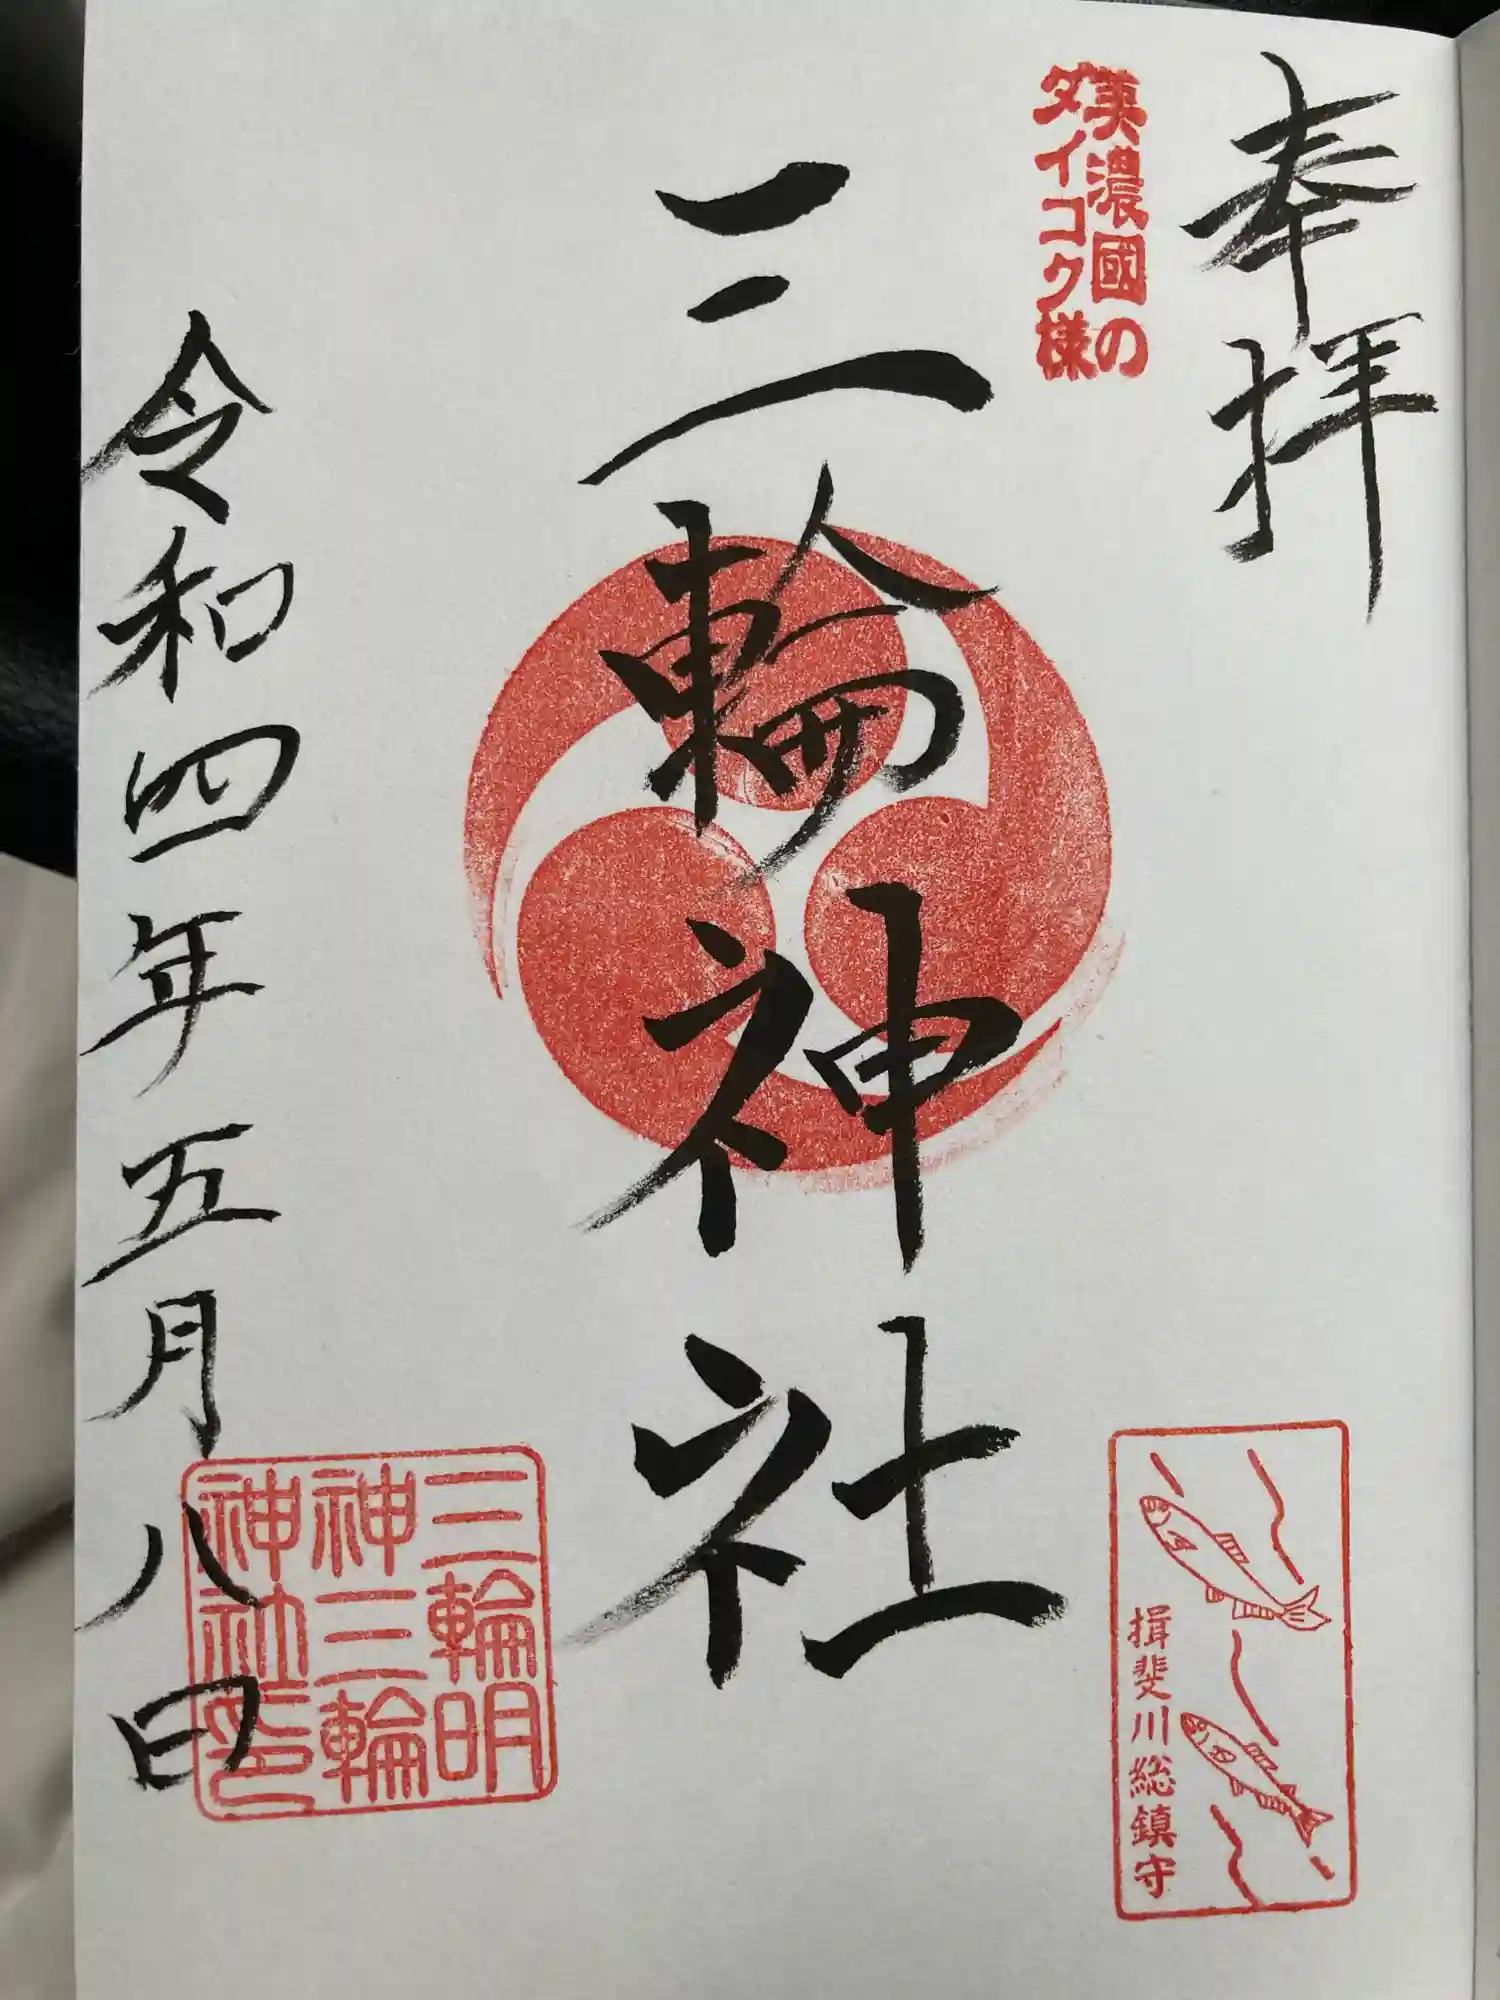 奉拝
美濃國の
ダイコク様
三輪神社
揖斐川総鎮守
三輪明
神三輪
神社印
令和四年五月八日